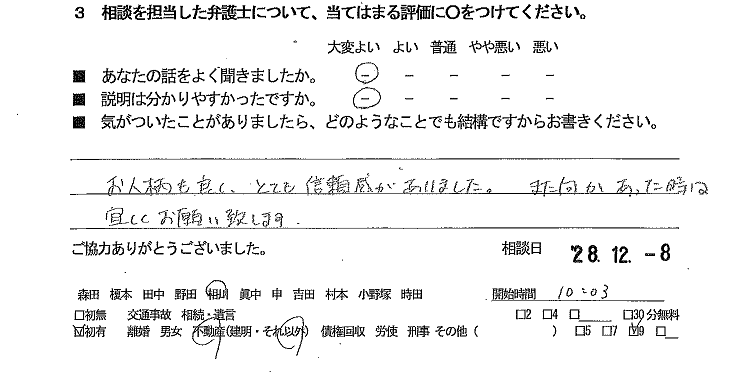 3 相談を担当した弁護士について、当てはまる評価に〇をつけてください。
大変よい よい 普通 やや悪い 悪い
■ あなたの話をよく聞きましたか。 － － － － －
■ 説明は分かりやすかったですか。 － － － － －
■ 気がついたことがありましたら、どのようなことでも結構ですからお書きください。
お人柄も良く、とても信頼感がありました。 また何かあった時は
宜しくお願い致します.
ご協力ありがとうございました。 相談日 '28.12.-8
森田 榎本 田中 野田 相川 眞中 申 吉田 村本 小野塚 時田 開始時間 10:03
□初無 交通事故 相続・遺言 □2 □4 □ □30分無料
☑初有 離婚 男女 不動産(建明・それ以外) 債権回収 労使 刑事 その他( ) □5 □7 ☑9 □